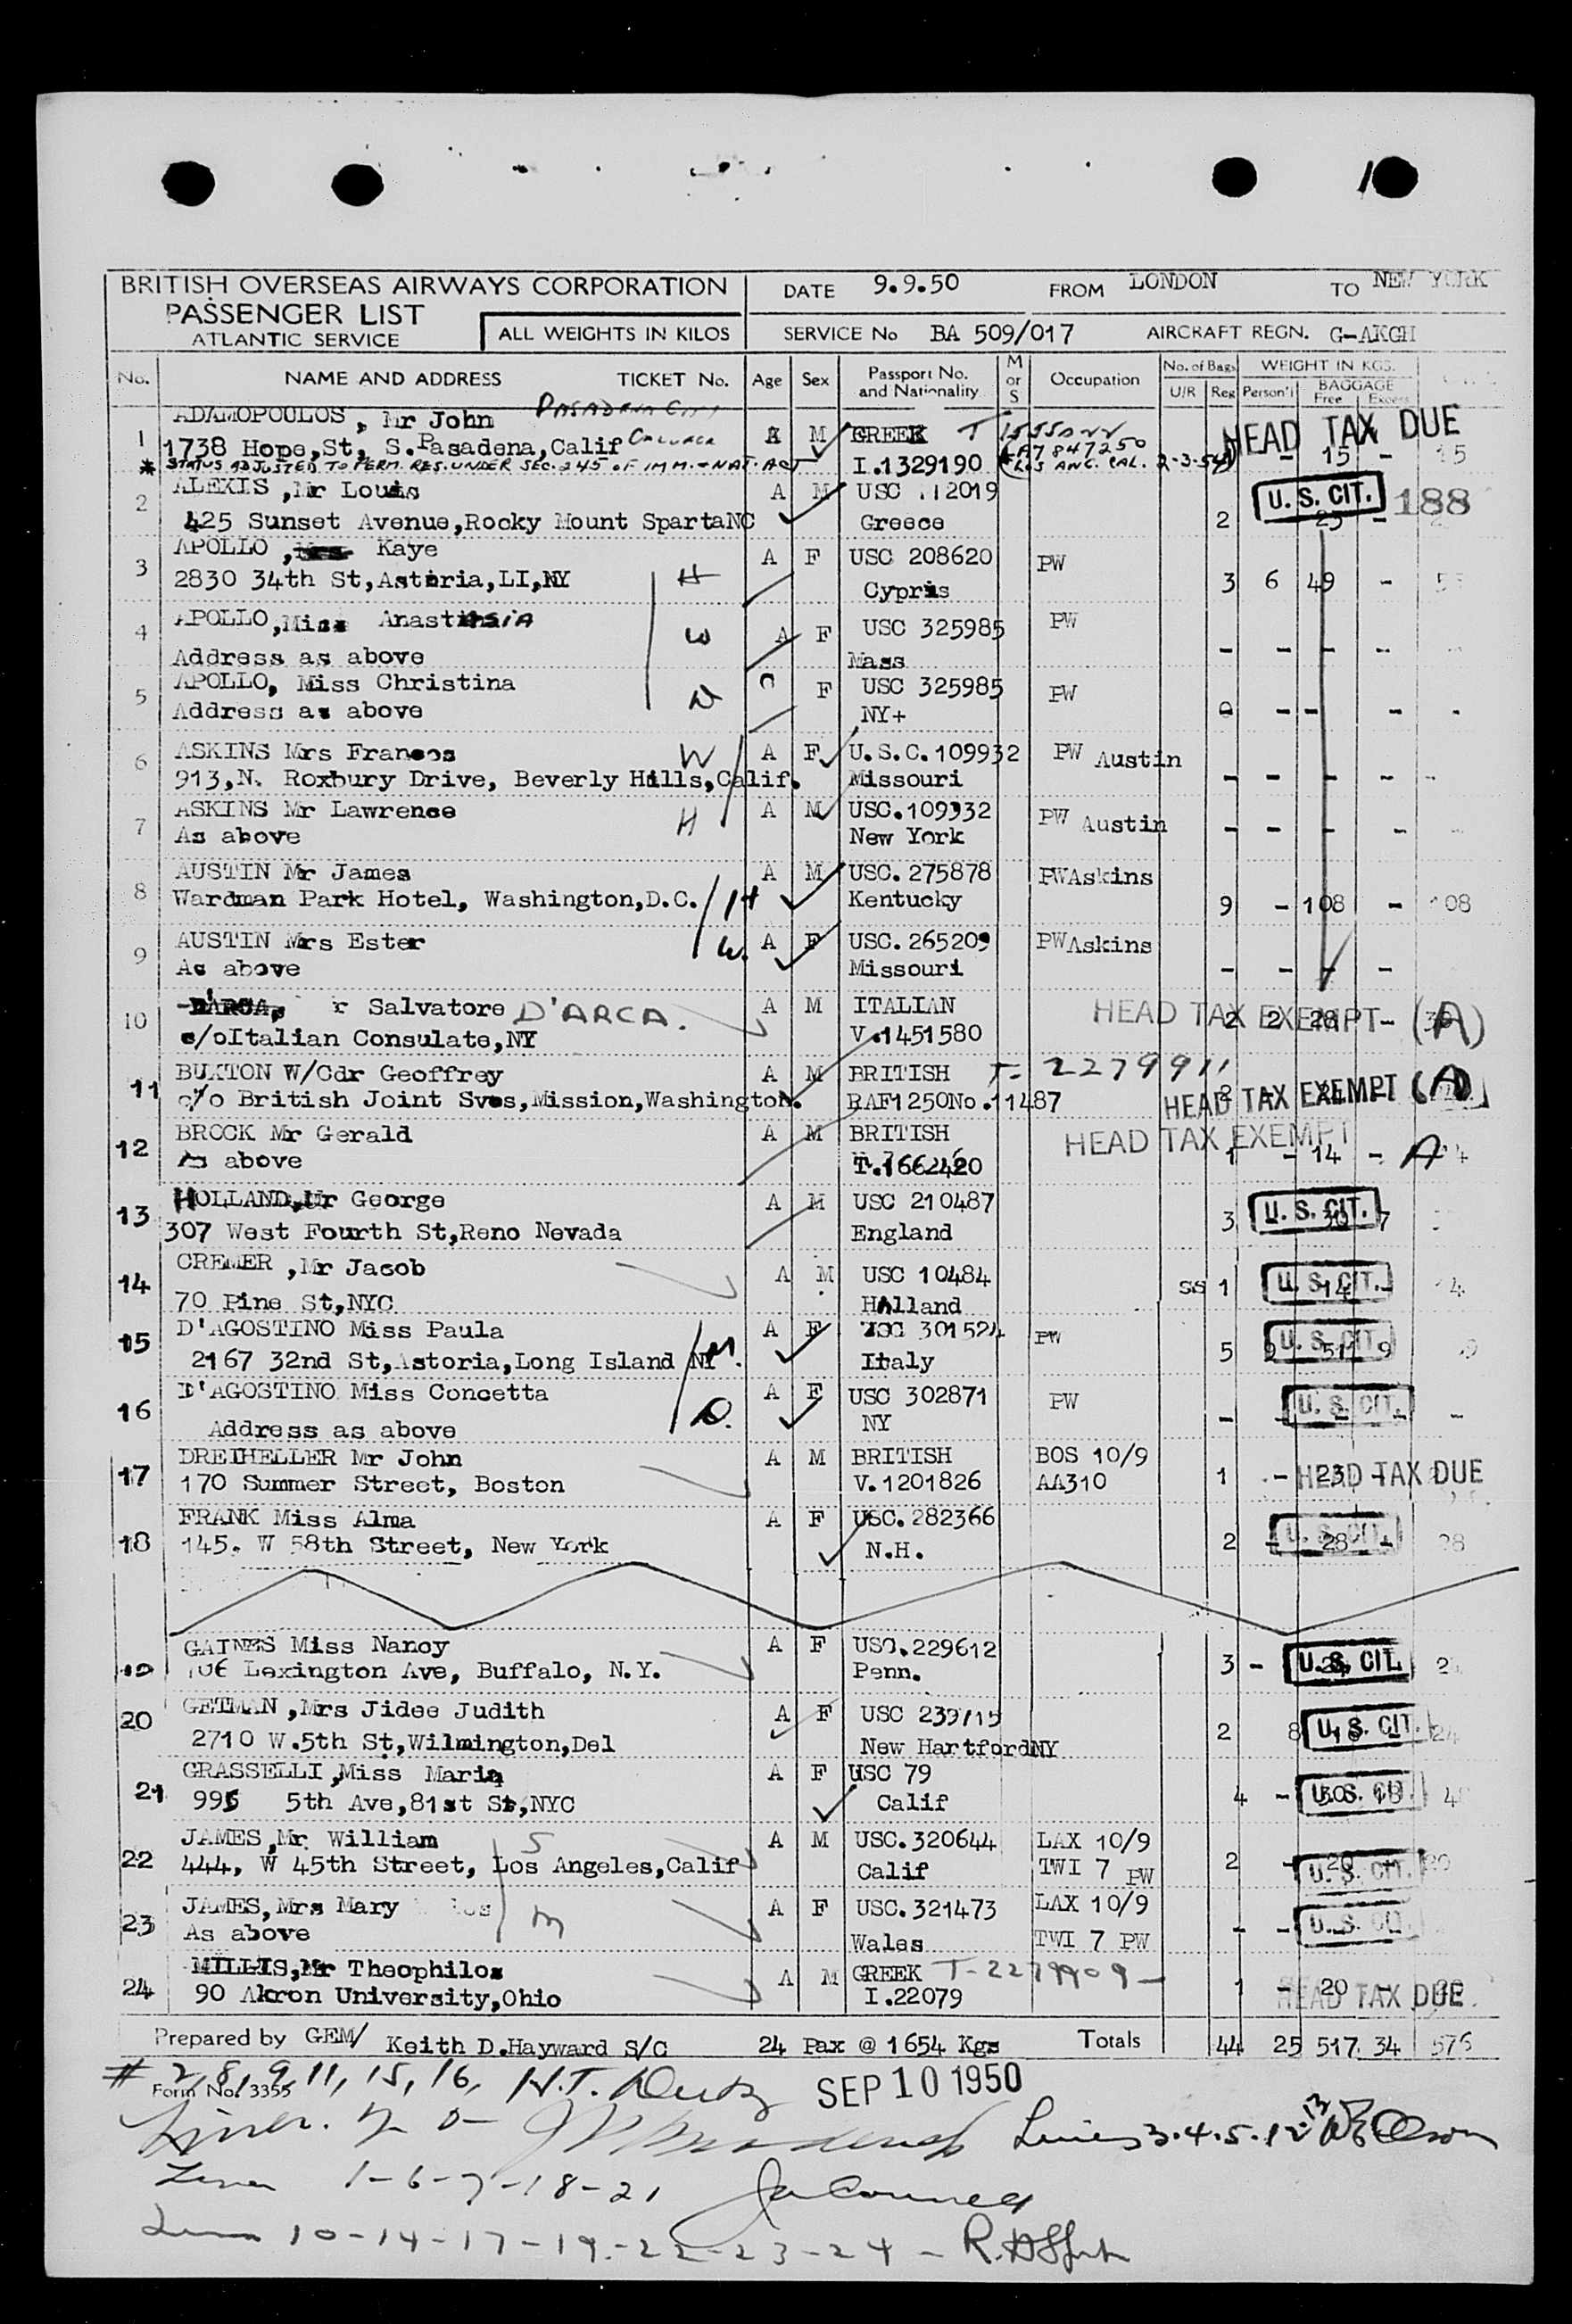 BRITISH OVERSEAS AIRWAYS CORPORATION
PASSENGER LIST
ATLANTIC SERVICE
ALL WEIGHTS IN KILOS
DATE 9.9.50 FROM LONDON TO NEW YORK
SERVICE No BA 509/017 AIRCRAFT REGN. G-AKGH
No. NAME AND ADDRESS TICKET No. Age Sex Passport No. and Nationality M or S Occupation No. of Bags U/R Reg WEIGHT IN KGS. Person'l BAGGAGE Free Excess
1 ADAMOPOULOS, Mr John PASADENA CITY COLLEGE A M GREEK T HEAD TAX DUE
1738 Hope,St, S.Pasadena,Calif I.1329190 A7847250 - 15 - 15
* STATUS ADJUSTED TO PERM. RES. UNDER SEC. 245 OF IMM. & NAT. ACT LOS ANG. CAL. 2-3-54
2 ALEXIS ,Mr Louis A M USC 112019 U.S. CIT. 188
425 Sunset Avenue,Rocky Mount SpartaNC Greece 2 23 -
3 APOLLO , Kaye A F USC 208620 PW
2830 34th St,Astoria,LI,NY H Cyprus 3 6 49 - 55
4 APOLLO,Miss Anastasia W A F USC 325985 PW
Address as above Mass - - - -
5 APOLLO, Miss Christina D C F USC 325985 PW
Address as above NY+ - - - -
6 ASKINS Mrs Frances W A F U.S.C.109932 PW Austin
913,N. Roxbury Drive, Beverly Hills,Calif. Missouri - - - - -
7 ASKINS Mr Lawrence A M USC.109932 PW Austin
As above H New York - - - -
8 AUSTIN Mr James A M USC.275878 PWAskins
Wardman Park Hotel, Washington,D.C. H Kentucky 9 - 108 - 108
9 AUSTIN Mrs Ester W. A F USC.265209 PWAskins
As above Missouri - - - -
10 D'ARCA, r Salvatore D'ARCA. A M ITALIAN HEAD TAX EXEMPT (A)
c/oItalian Consulate,NY V.1451580 2 2 28 - 30
11 BUXTON W/Cdr Geoffrey A M BRITISH T-2279911
c/o British Joint Svcs,Mission,Washington. RAF1250No.11487 HEAD TAX EXEMPT (A)
12 BROCK Mr Gerald A M BRITISH HEAD TAX EXEMPT
As above T.1662420 1 - 14 - A 14
13 HOLLAND,Mr George A M USC 210487 U.S. CIT.
307 West Fourth St,Reno Nevada England 3 30 7
14 CREMER ,Mr Jacob A M USC 10484 U.S. CIT.
70 Pine St,NYC Holland SS 1 14 14
15 D'AGOSTINO Miss Paula A F USC 301524 PW U.S. CIT.
2167 32nd St,Astoria,Long Island NY M. Italy 5 9 51 9
16 D'AGOSTINO Miss Concetta A F USC 302871 PW U.S. CIT.
Address as above D. NY - - - -
17 DREIHELLER Mr John A M BRITISH BOS 10/9
170 Summer Street, Boston V.1201826 AA310 1 - 23 - HEAD TAX DUE
18 FRANK Miss Alma A F USC.282366 U.S. CIT.
145. W 58th Street, New York N.H. 2 - 28 - 28
19 GAINES Miss Nancy A F USC.229612 U.S. CIT.
106 Lexington Ave, Buffalo, N.Y. Penn. 3 -
20 GETMAN ,Mrs Jidee Judith A F USC 239715 U.S. CIT.
2710 W.5th St,Wilmington,Del New HartfordNY 2 8 24
21 GRASSELLI,Miss Maria A F USC 79 U.S. CIT.
995 5th Ave,81st St,NYC Calif 4 - 30 18 48
22 JAMES,Mr William S A M USC.320644 LAX 10/9
444, W 45th Street, Los Angeles,Calif Calif TWI 7 PW 2 - 20 - 20 U.S. CIT.
23 JAMES,Mrs Mary A F USC.321473 LAX 10/9
As above M Wales TWI 7 PW - - U.S. CIT.
24 MILLIS,Mr Theophilos A M GREEK T-2279909-
90 Akron University,Ohio I.22079 1 - 20 - 20 HEAD TAX DUE
Prepared by GEM/ Keith D.Hayward S/C 24 Pax @ 1654 Kgs Totals 44 25 517 34 576
# 2,8,9,11,15,16, H.T.
Form No. 3355 SEP 10 1950
Lines 3.4.5.12.13 Olson
1-6-7-18-21
10-14-17-19-22-23-24 -